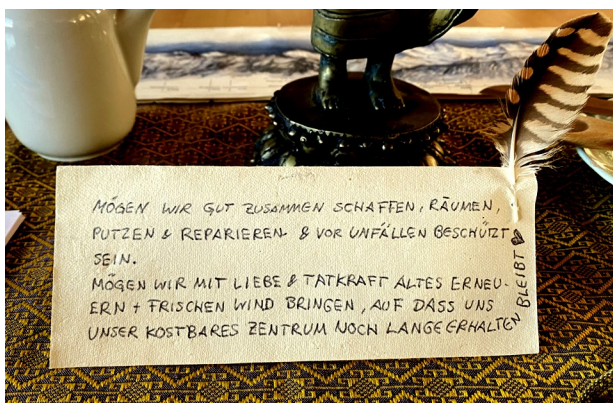 MÖGEN WIR GUT ZUSAMMEN SCHAFFEN, RÄUMEN,
PUTZEN & REPARIEREN & VOR UNFÄLLEN BESCHÜTZT
SEIN.
MÖGEN WIR MIT LIEBE & TATKRAFT ALTES ERNEU-
ERN + FRISCHEN WIND BRINGEN, AUF DASS UNS
UNSER KOSTBARES ZENTRUM NOCH LANGE ERHALTEN
BLEIBT